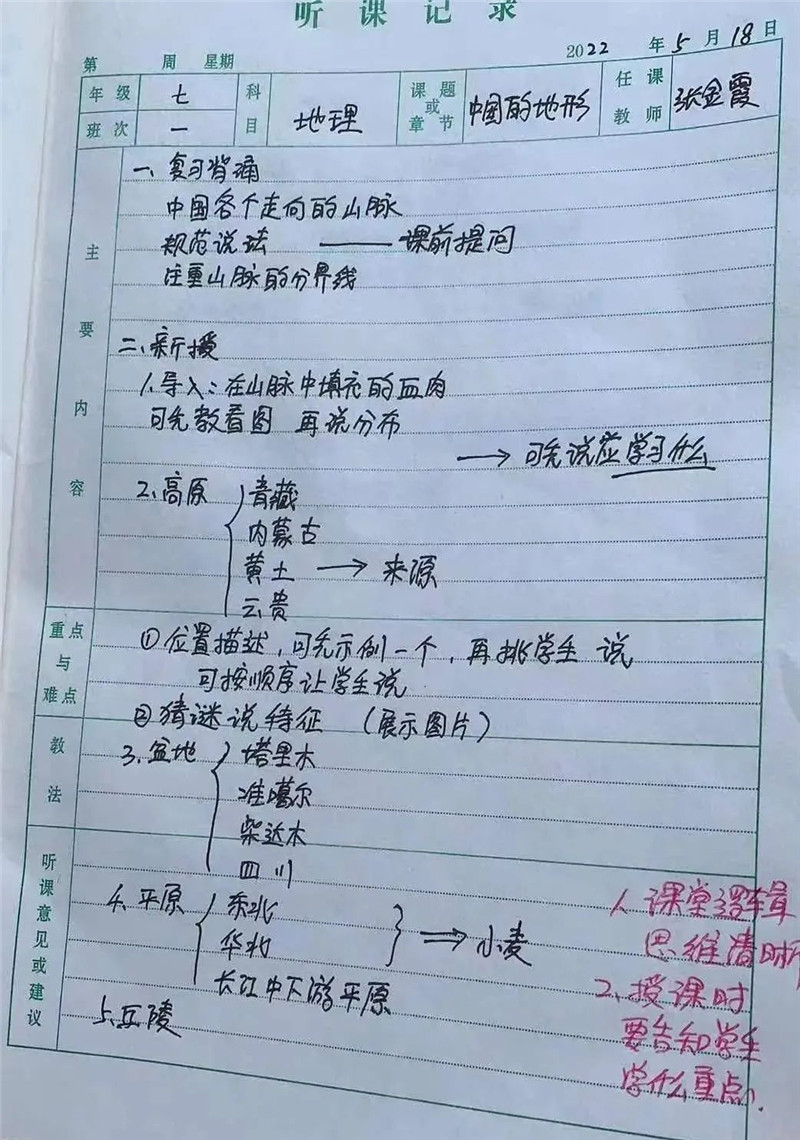 听课记录
第 周 星期 2022年5月18日
年级 七 科目 地理 课题或章节 中国的地形 任课教师 张金霞
班次 一
主要内容
一、复习背诵
中国各个走向的山脉
规范说法 —— 课前提问
注重山脉的分界线
二、新授
1、导入：在山脉中填充的血肉
可先教看图 再说分布
→ 可先说应学习什么
2、高原 { 青藏
内蒙古
黄土 → 来源
云贵
重点与难点
①位置描述，可先示例一个，再挑学生 说
可按顺序让学生说
②猜谜说特征 （展示图片）
教法
3、盆地 { 塔里木
准噶尔
柴达木
四川
听课意见或建议
4、平原 { 东北
华北 } ⇒ 小麦
长江中下游平原
5、丘陵
1、课堂逻辑
思维清晰
2、授课时
要告知学生
学什么重点。